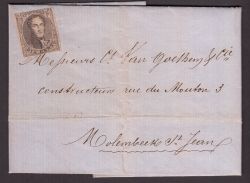 Messieurs Ct. Van Goethem & Cie
constructeur rue du Mouton 3
Molembeek St. Jean